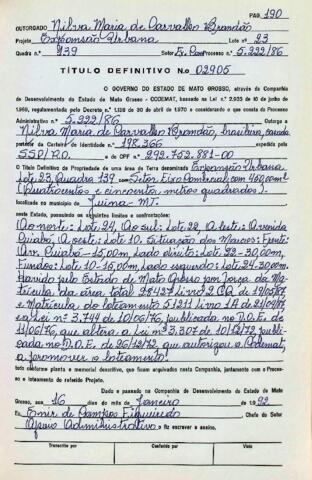 PAG. 190
OUTORGADO Nilva Maria de Carvalho Brandão
Projeto Expansão Urbana Lote nº 23
Quadra n.º 139 Setor Ex. Com Processo n.º 5.222/86
TÍTULO DEFINITIVO N.o 02905
O GOVERNO DO ESTADO DE MATO GROSSO, através da Companhia
de Desenvolvimento do Estado de Mato Grosso - CODEMAT, baseado na Lei n.º 2.933 de 10 de junho de
1969, regulamentada pelo Decreto n.º 1.138 de 30 de abril de 1970 e considerando o que consta do Processo
Administrativo n.º 5.222/86 Outorga a
Nilva Maria de Carvalho Brandão, brasileira, casada
portador da Carteira de Identidade n.º 198.366 expedida pela
SSP/RO. e do CPF n.º 292.752.881-00
O Título Definitivo de Propriedade de uma área de Terra denominada Expansão Urbana
Lote 23, Quadra 139 - Setor Eixo Comercial com 450,00m²
(Quatrocentos e cincoenta metros quadrados)
localizada no município de Juina-MT.
neste Estado, possuindo os seguintes limites e confrontações:
Ao norte: Lote 24, Ao sul: Lote 22, A leste: Avenida
Cuiabá, A oeste: Lote 10. Situação dos Marcos: Frente:
Av. Cuiabá - 15,00m, Lado direito: Lote 22 - 30,00m,
Fundos: Lote 10 - 15,00m, Lado esquerdo: Lote 24 - 30,00m.
Havido pelo Estado de Mato Grosso por força da Ma-
trícula da área total 28427 Livro 2 CQ de 19/05/87
e Matrícula do loteamento 51211 Livro 1A de 24/09/87
e a Lei nº 3.744 de 10/06/76, publicada no D.O.E. de
11/06/76, que altera a Lei nº 3.307 de 10/12/72, publi-
cada no D.O.E. de 26/12/72 que autorizou a Codemat
a promover o loteamento.
tudo conforme planta e memorial descritivo, que ficam arquivados nesta Companhia, juntamente com o Proces-
so e loteamento do referido Projeto.
Dado e passado na Companhia de Desenvolvimento do Estado de Mato
Grosso, aos 16 dias do mês de Janeiro de 1992
Eu Enir de Campos Figueiredo Chefe do Setor
Apoio Administrativo o, fiz escrever e assino.
Transcrito por Conferido por Visto